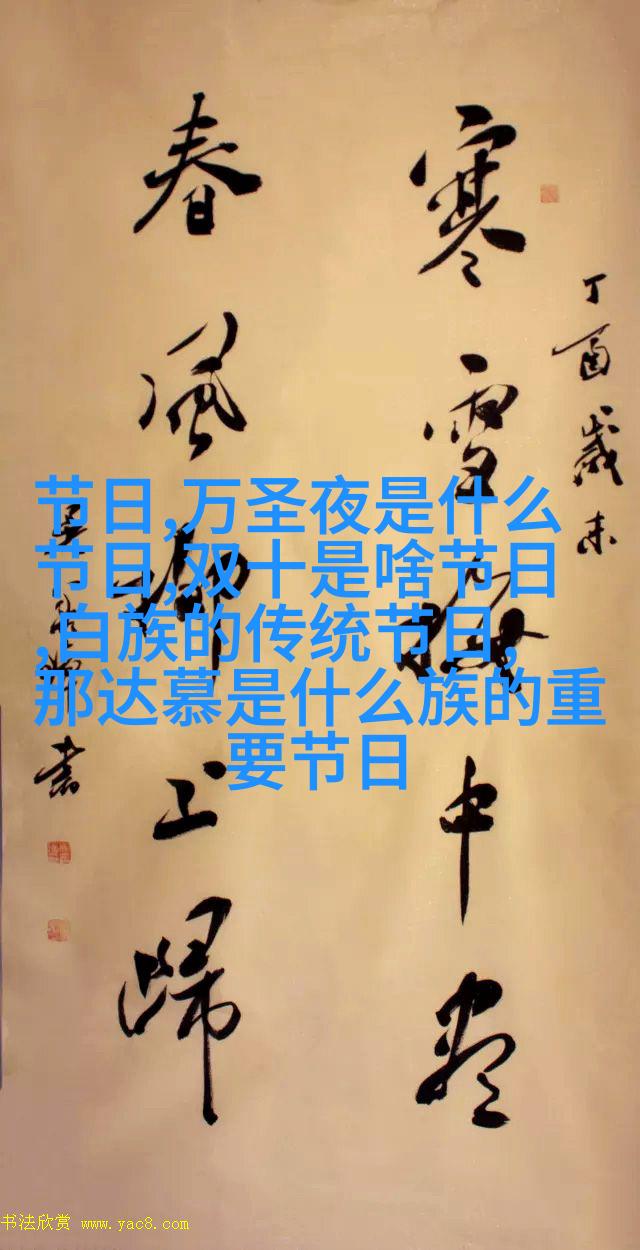 丁酉歲末
寒雪梅中盡
春風柳上歸
書
节日,万圣夜是什么
节日,双十是啥节日
,白族的传统节日,
那达慕是什么族的重
要节日
书法欣赏 www.yac8.com